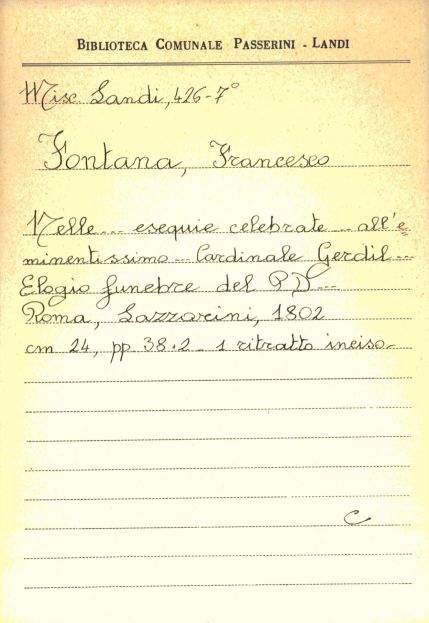 BIBLIOTECA COMUNALE PASSERINI - LANDI
Misc Landi, 426-7°
Fontana, Francesco
Nelle... esequie celebrate... all'e-
minentissimo... Cardinale Gerdil...
Elogio funebre del P. D...
Roma, Lazzarini, 1802
cm 24, pp. 38+2 - 1 ritratto inciso-
C